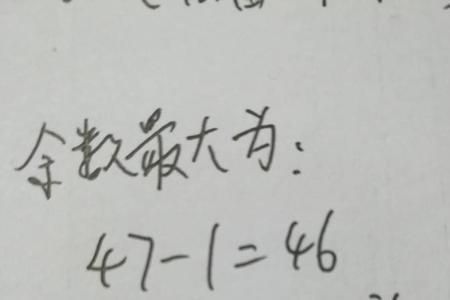 余数最大为:
47-1=46